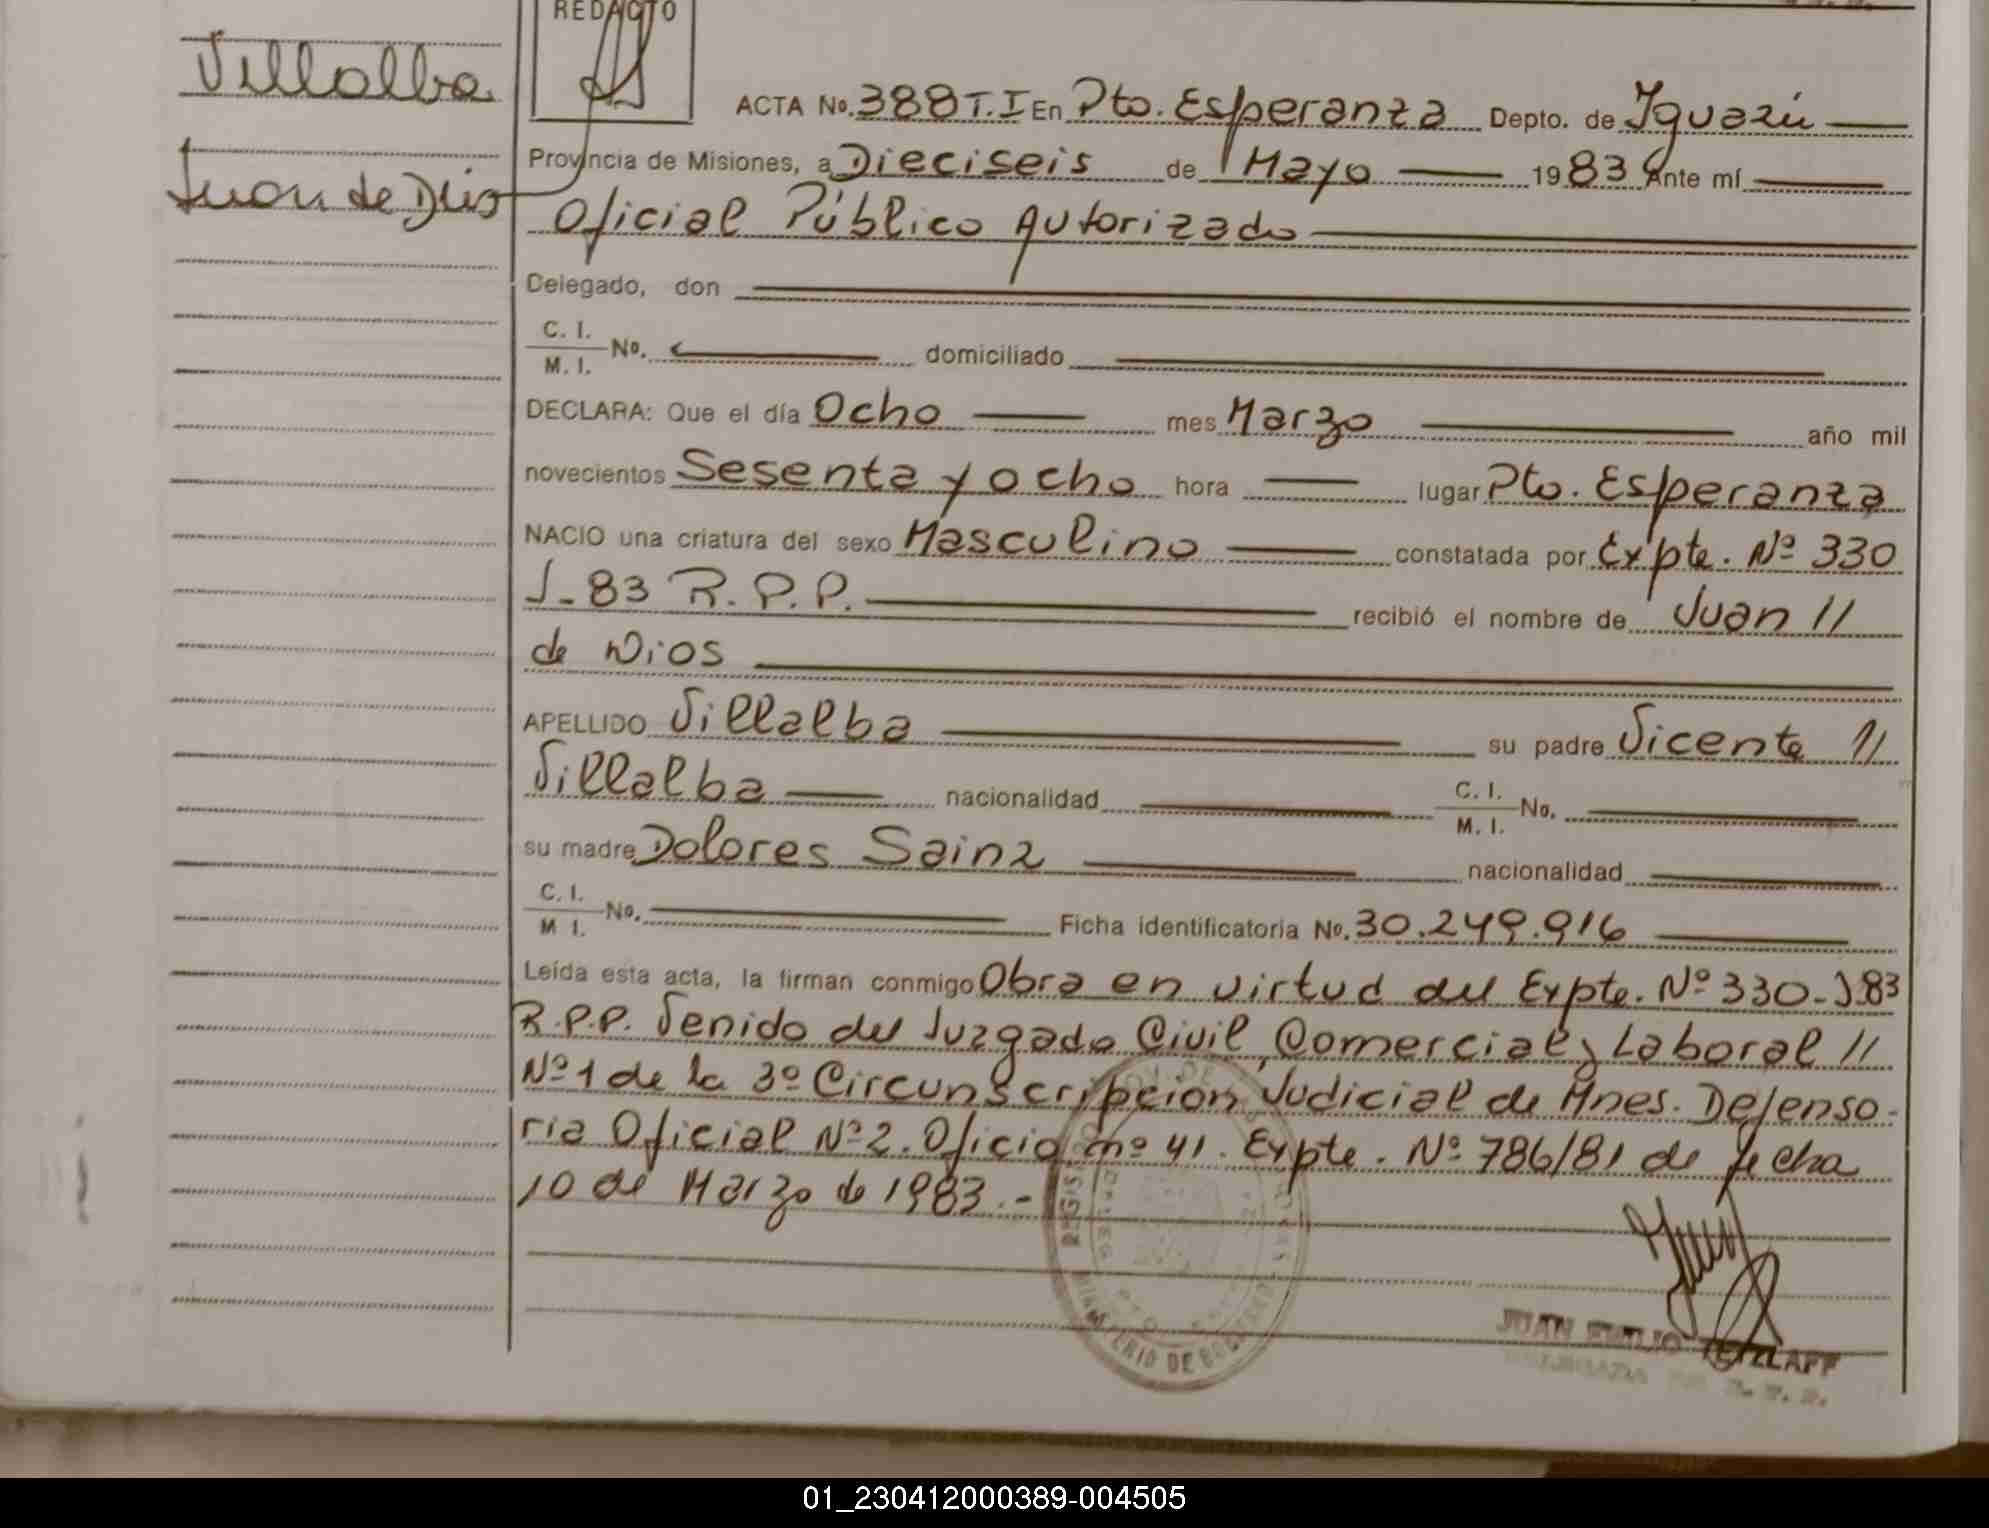 REDACTO
Villalba
Juan de Dios
ACTA No. 388 T.I En Pto. Esperanza Depto. de Iguazú
Provincia de Misiones, a Dieciseis de Mayo 1983 Ante mí
Oficial Público Autorizado
Delegado, don
C. I.
M. I. No. domiciliado
DECLARA: Que el día Ocho mes Marzo año mil
novecientos Sesenta y ocho hora lugar Pto. Esperanza
NACIO una criatura del sexo Masculino constatada por Expte. Nº 330
J-83 R.P.P. recibió el nombre de Juan //
de Dios
APELLIDO Villalba su padre Vicente //
Villalba nacionalidad C. I. M. I. No.
su madre Dolores Sainz nacionalidad
C. I.
M I. No. Ficha identificatoria No. 30.249.916
Leída esta acta, la firman conmigo Obra en virtud del Expte. Nº 330-J-83
R.P.P. Venido del Juzgado Civil, Comercial y Laboral //
Nº 1 de la 3º Circunscripción Judicial de Mnes. Defenso-
ria Oficial Nº 2. Oficio nº 41. Expte. Nº 786/81 de fecha
10 de Marzo de 1983.-
MINISTERIO DE GOBIERNO
JUAN EMILIO TETZLAFF
01_230412000389-004505